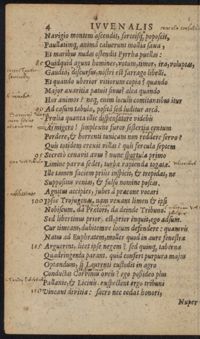 4 IVVENALIS
Nauigio montem ascendit, sortesq; poposcit,
Paullatimq; anima caluerunt mollia saxa,
Et maribus nudas ostendit Pyrrha puellas:
85 Quidquid agunt homines, votum, timor, ira, voluptas,
Gaudia, discursus, nostri est farrago libelli.
Et quando vberior vitiorum copia? quando
Maior auaritia patuit sinus? alea quando
Hos animos? neq; enim loculis comitantibus itur
90 Ad casum tabulæ, posita sed luditur arca.
Prælia quanta illic dispensatore videbis
Armigero! simplexne furor sestertia centum
Perdere, & horrenti tunicam non reddere seruo?
Quis totidem erexit villas? quis fercula septem
95 Secreto cenauit auus? nunc sportula primo
Limine parua sedet, turbæ rapienda togatæ.
Ille tamen faciem prius inspicit, & trepidat, ne
Suppositus venias, & falso nomine poscas.
Agnitus accipies; iubet a præcone vocari
100 Ipsos Troiugenas, nam vexant limen & ipsi
Nobiscum, da Prætori, da deinde Tribuno.
Sed libertinus prior est. prior inquit, ego adsum.
Cur timeam, dubitemue locum defendere? quamuis
Natus ad Euphratem, molles quod in aure fenestræ
105 Arguerint, licet ipse negem? sed quinq; tabernæ
Quadringenta parant. quid confert purpura maior
Optandum, si Laurenti custodit in agro
Conductas Coruinus oues? ego possideo plus
Pallante, & Licinis. exspectent ergo tribuni
110 Vincant diuitiæ: sacro nec cedat honori,
Nuper